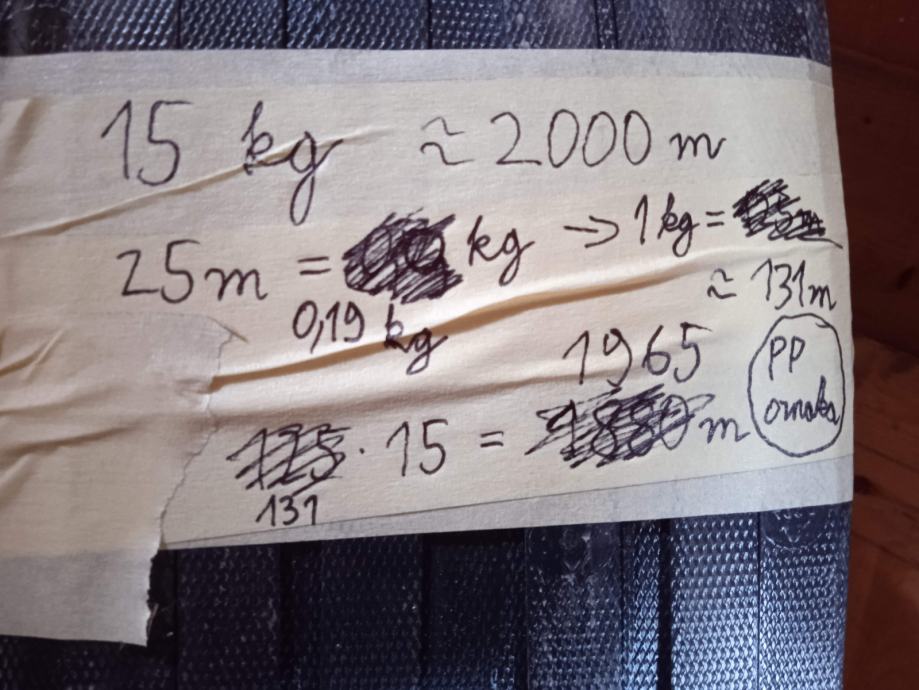 15 kg ≈ 2000 m
25m = kg → 1 kg =
0,19 kg
≈ 131m
1965
· 15 = m
131
PP
omaka